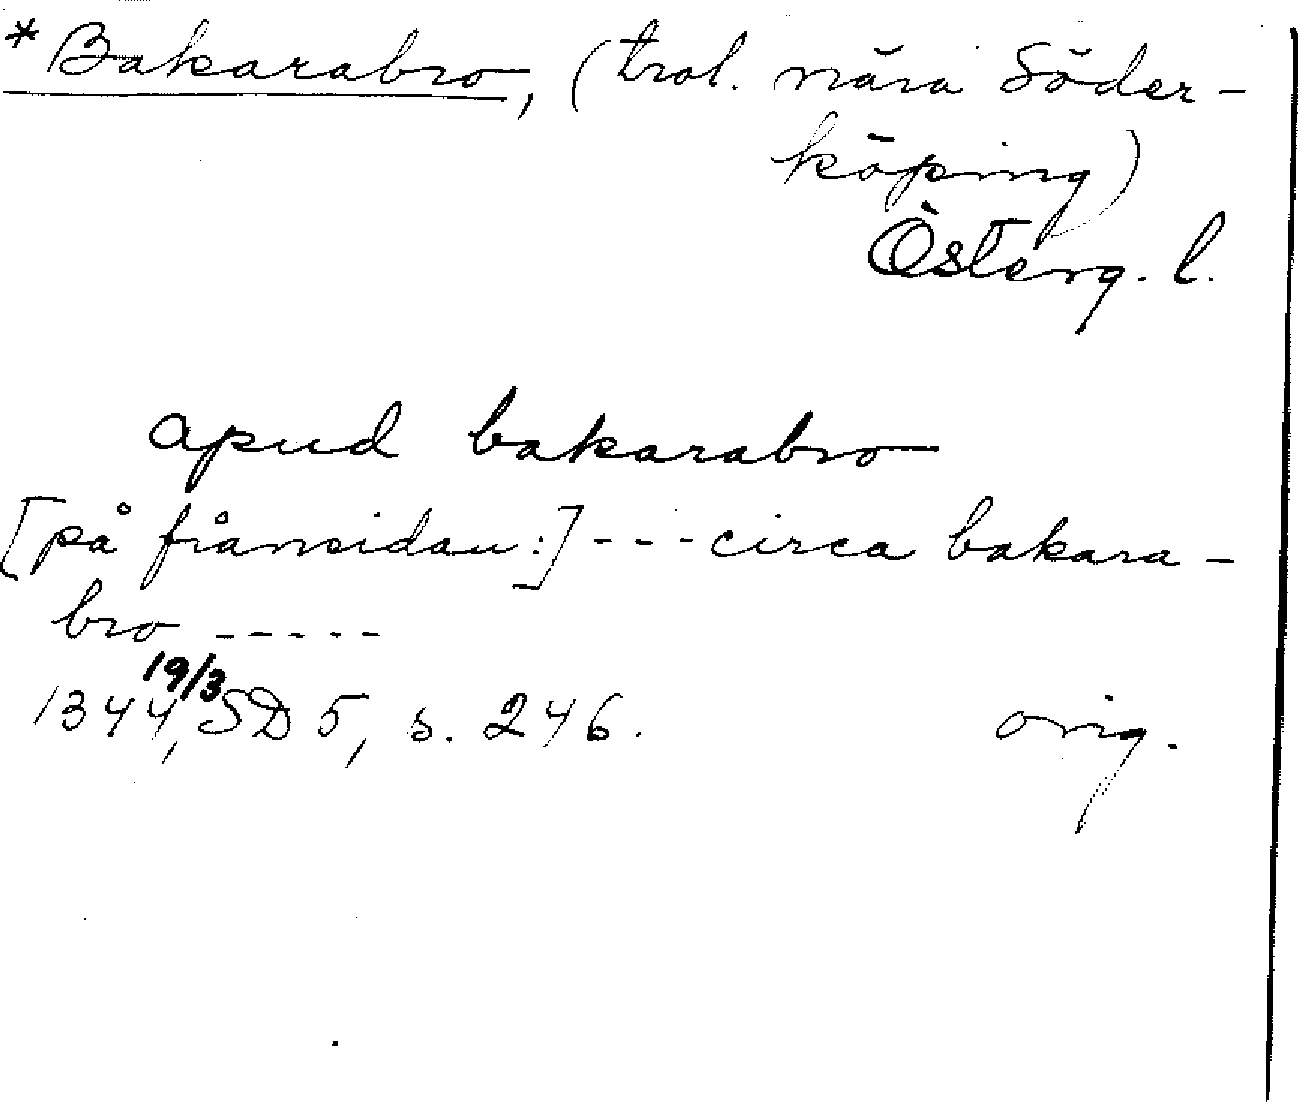 *Bakarabro, (trol. nära Söder-
köping)
Österg. l.
apud bakarabro
[på frånsidan:] --- circa bakara-
bro -----
1344 19/3, SD 5, s. 246. orig.